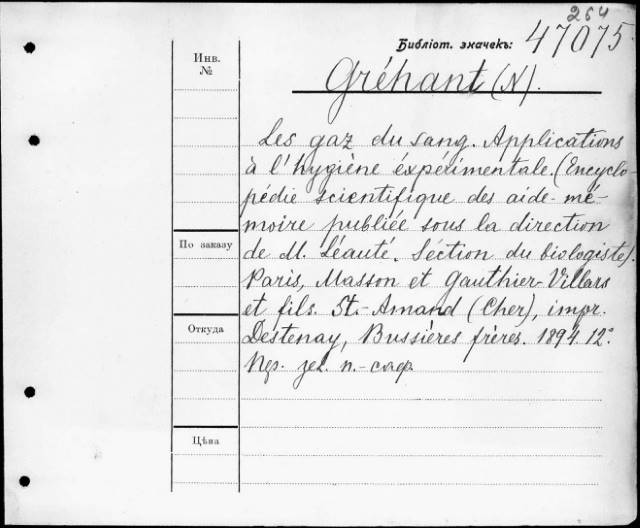 264
Библіот. значекъ: 47075
Инв.
№
Gréhant (N).
Les gaz du sang. Applications
à l'hygiène éxpérimentale. (Encyclo-
pédie scientifique des aide-mé-
moire publiée sous la direction
По заказу
de M. Léauté. Séction du biologiste).
Paris, Masson et Gauthier-Villars
et fils. St.-Amand (Cher), impr.
Откуда
Destenay, Bussières frères. 1894. 12°
Цѣна